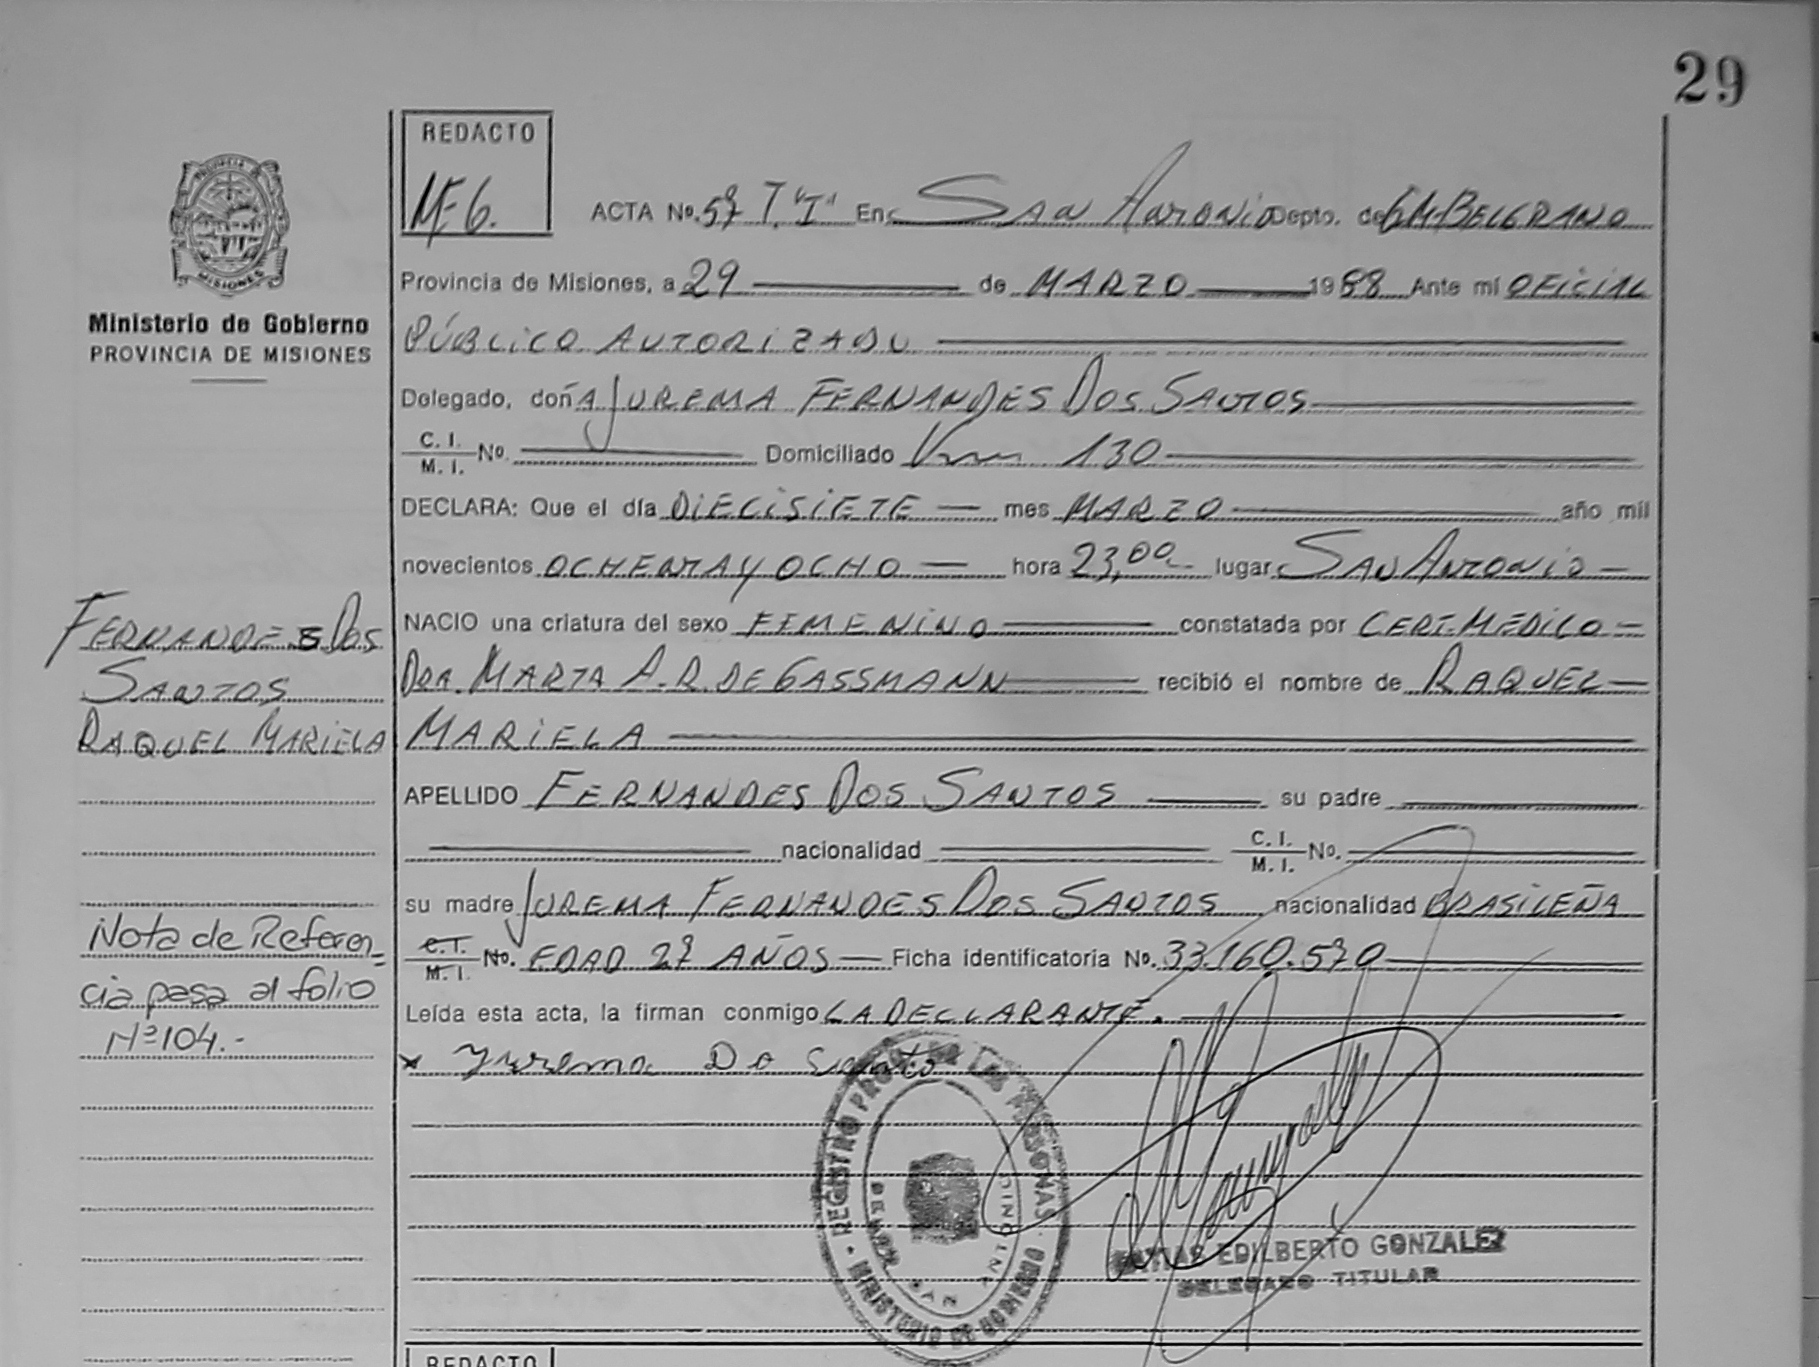 29
REDACTO
M-6.
ACTA Nº. 57 T."I" En SAN ANTONIO Depto. de GM.BELGRANO
Provincia de Misiones, a 29 de MARZO 1988 Ante mí OFICIAL
PÚBLICO AUTORIZADO
Ministerio de Gobierno
PROVINCIA DE MISIONES
Delegado, doñA JUREMA FERNANDES DOS SANTOS
C. I. / M. I. No. Domiciliado Km 130
DECLARA: Que el día DIECISIETE mes MARZO año mil
novecientos OCHENTA Y OCHO hora 23,00 lugar SAN ANTONIO
NACIO una criatura del sexo FEMENINO constatada por CERT.MÉDICO
DRA. MARTA A.R. DE GASSMANN recibió el nombre de RAQUEL
MARIELA
FERNANDES DOS
SANTOS
RAQUEL MARIELA
APELLIDO FERNANDES DOS SANTOS su padre
nacionalidad C. I. / M. I. No.
su madre JUREMA FERNANDES DOS SANTOS nacionalidad BRASILEÑA
C. I. / M. I. No. EDAD 27 AÑOS Ficha identificatoria No. 33.160.570
Leída esta acta, la firman conmigo LA DECLARANTE.
Nota de Referen=
cia pasa al folio
Nº 104.-
x Jurema Do Santo
REGISTRO PROV. DE LAS PERSONAS
MINISTERIO DE GOBIERNO
EDILBERTO GONZALEZ
DELEGADO TITULAR
REDACTO